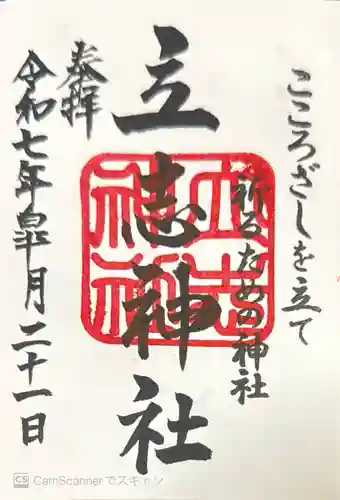 こころざしを立て
祈るための神社
立志神社
立志
神社
奉拝
令和七年皐月二十一日
CS CamScanner でスキャン